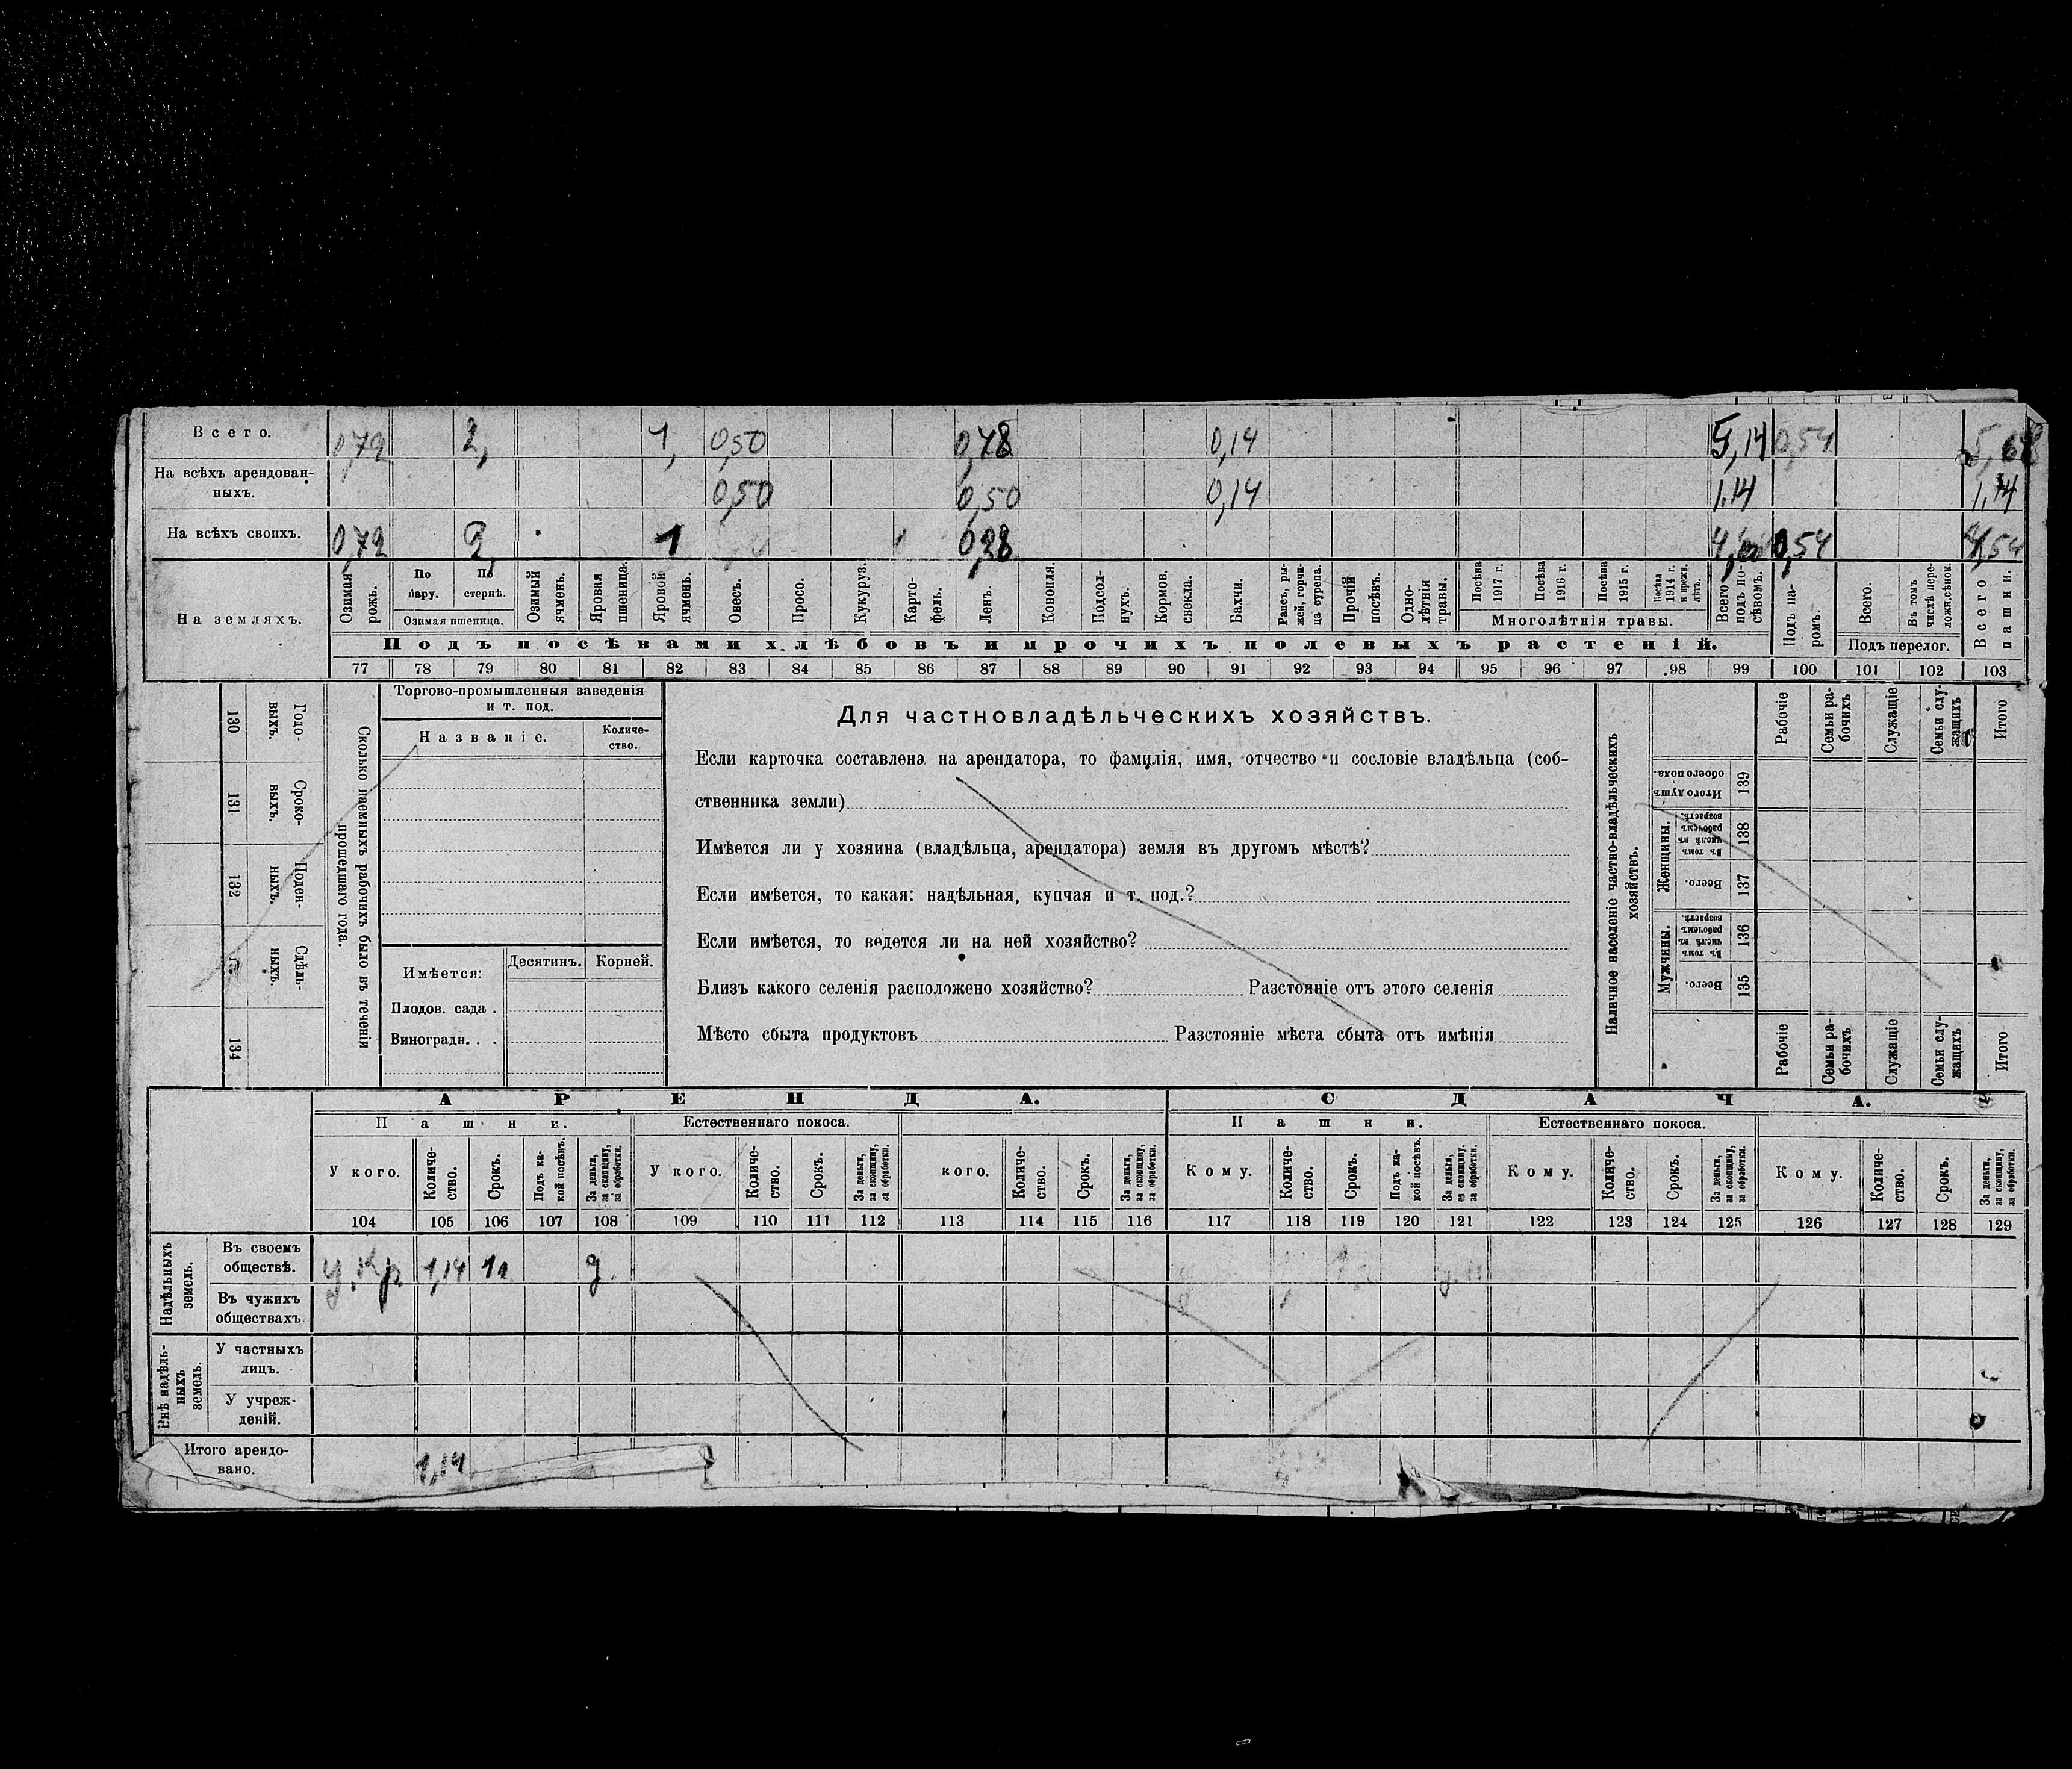 Всего. 0,72 2, 1, 0,50 0,78 0,14 5,14 0,54 5,68
На всѣхъ арендован-
ныхъ. 0,50 0,50 0,14 1,14 1,14
На всѣхъ своихъ. 0,72 2 1 0,28 0,54 4,54
На земляхъ.
Озимая рожь.
По пару.
По стернѣ.
Озимая пшеница.
Озимый ячмень.
Яровая пшеница.
Яровой ячмень.
Овесъ.
Просо.
Кукуруз.
Карто-
фель.
Ленъ.
Конопля.
Подсол-
нухъ.
Кормов. свекла.
Бахчи.
Рапсъ, ры-
жей, горчи-
ца сурепа.
Прочій посѣвъ.
Одно-
лѣтнія травы.
Посѣва 1917 г.
Посѣва 1916 г.
Посѣва 1915 г.
Посѣва 1914 г. и прежн. лѣтъ.
Многолѣтнія травы.
Всего подъ по-
сѣвомъ.
Подъ па-
ромъ.
Всего.
Въ томъ числѣ пере-
ложн.сѣнок.
Подъ перелог.
Всего пашни.
Подъ посѣвами хлѣбовъ и прочихъ полевыхъ растеній.
77 78 79 80 81 82 83 84 85 86 87 88 89 90 91 92 93 94 95 96 97 98 99 100 101 102 103
130 Годо-
ныхъ.
131 Сроко-
ныхъ.
132 Поден-
ныхъ.
Сдѣль-
ныхъ.
134
Сколько наемныхъ рабочихъ было въ теченіи
прошедшаго года.
Торгово-промышленныя заведенія
и т. под.
Названіе.
Количе-
ство.
Имѣется:
Десятинъ. Корней.
Плодов. сада .
Виноградн. . .
Для частновладѣльческихъ хозяйствъ.
Если карточка составлена на арендатора, то фамилія, имя, отчество и сословіе владѣльца (соб-
ственника земли)
Имѣется ли у хозяина (владѣльца, арендатора) земля въ другомъ мѣстѣ?
Если имѣется, то какая: надѣльная, купчая и т. под.?
Если имѣется, то ведется ли на ней хозяйство?
Близъ какого селенія расположено хозяйство? Разстояніе отъ этого селенія
Мѣсто сбыта продуктовъ Разстояніе мѣста сбыта отъ имѣнія
Наличное населеніе частно-владѣльческихъ
хозяйствъ.
Итого душъ обоего пола. 139
Женщины.
Въ томъ числѣ въ рабочемъ возрастѣ. 138
Всего. 137
Мужчины.
Въ томъ числѣ въ рабочемъ возрастѣ. 136
Всего. 135
Рабочіе
Семьи ра-
бочихъ
Служащіе
Семьи слу-
жащихъ
Итого
Рабочіе
Семьи ра-
бочихъ
Служащіе
Семьи слу-
жащихъ
Итого
АРЕНДА. СДАЧА.
Пашни. Естественнаго покоса. Пашни. Естественнаго покоса.
У кого.
Количе-
ство.
Срокъ.
Подъ ка-
кой посѣвъ.
За деньги, за скопщину, за обработки.
У кого.
Количе-
ство.
Срокъ.
За деньги, за скопщину, за обработки.
кого.
Количе-
ство.
Срокъ.
За деньги, за скопщину, за обработки.
Кому.
Количе-
ство.
Срокъ.
Подъ ка-
кой посѣвъ.
За деньги, за скопщину, за обработки.
Кому.
Количе-
ство.
Срокъ.
За деньги, за скопщину, за обработки.
Кому.
Количе-
ство.
Срокъ.
За деньги, за скопщину, за обработки.
104 105 106 107 108 109 110 111 112 113 114 115 116 117 118 119 120 121 122 123 124 125 126 127 128 129
Надѣльныхъ земель.
Въ своемъ
обществѣ. у кр. 1,14 д.
Въ чужихъ
обществахъ
Внѣ надѣль-
ныхъ земель.
У частныхъ
лицъ.
У учреж-
деній.
Итого арендо-
вано. 1,14